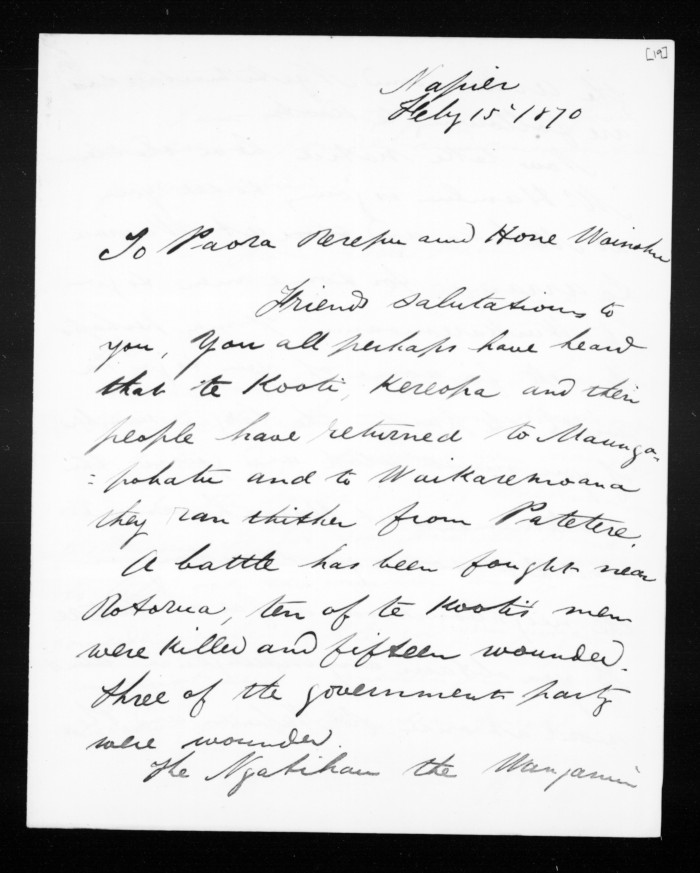 [19]
Napier
Feby 15th 1870
To Paora Rerepu and Hone Wainohu
Friends salutations to
you, You all perhaps have heard
that te Kooti, Kereopa and their
people have returned to Maunga=
=pohatu and to Waikaremoana
they ran thither from Patetere.
A battle has been fought near
Rotorua, ten of te Kooti's men
were killed and fifteen wounded.
three of the government party
were wounded.
The Ngatihau the Wanganui